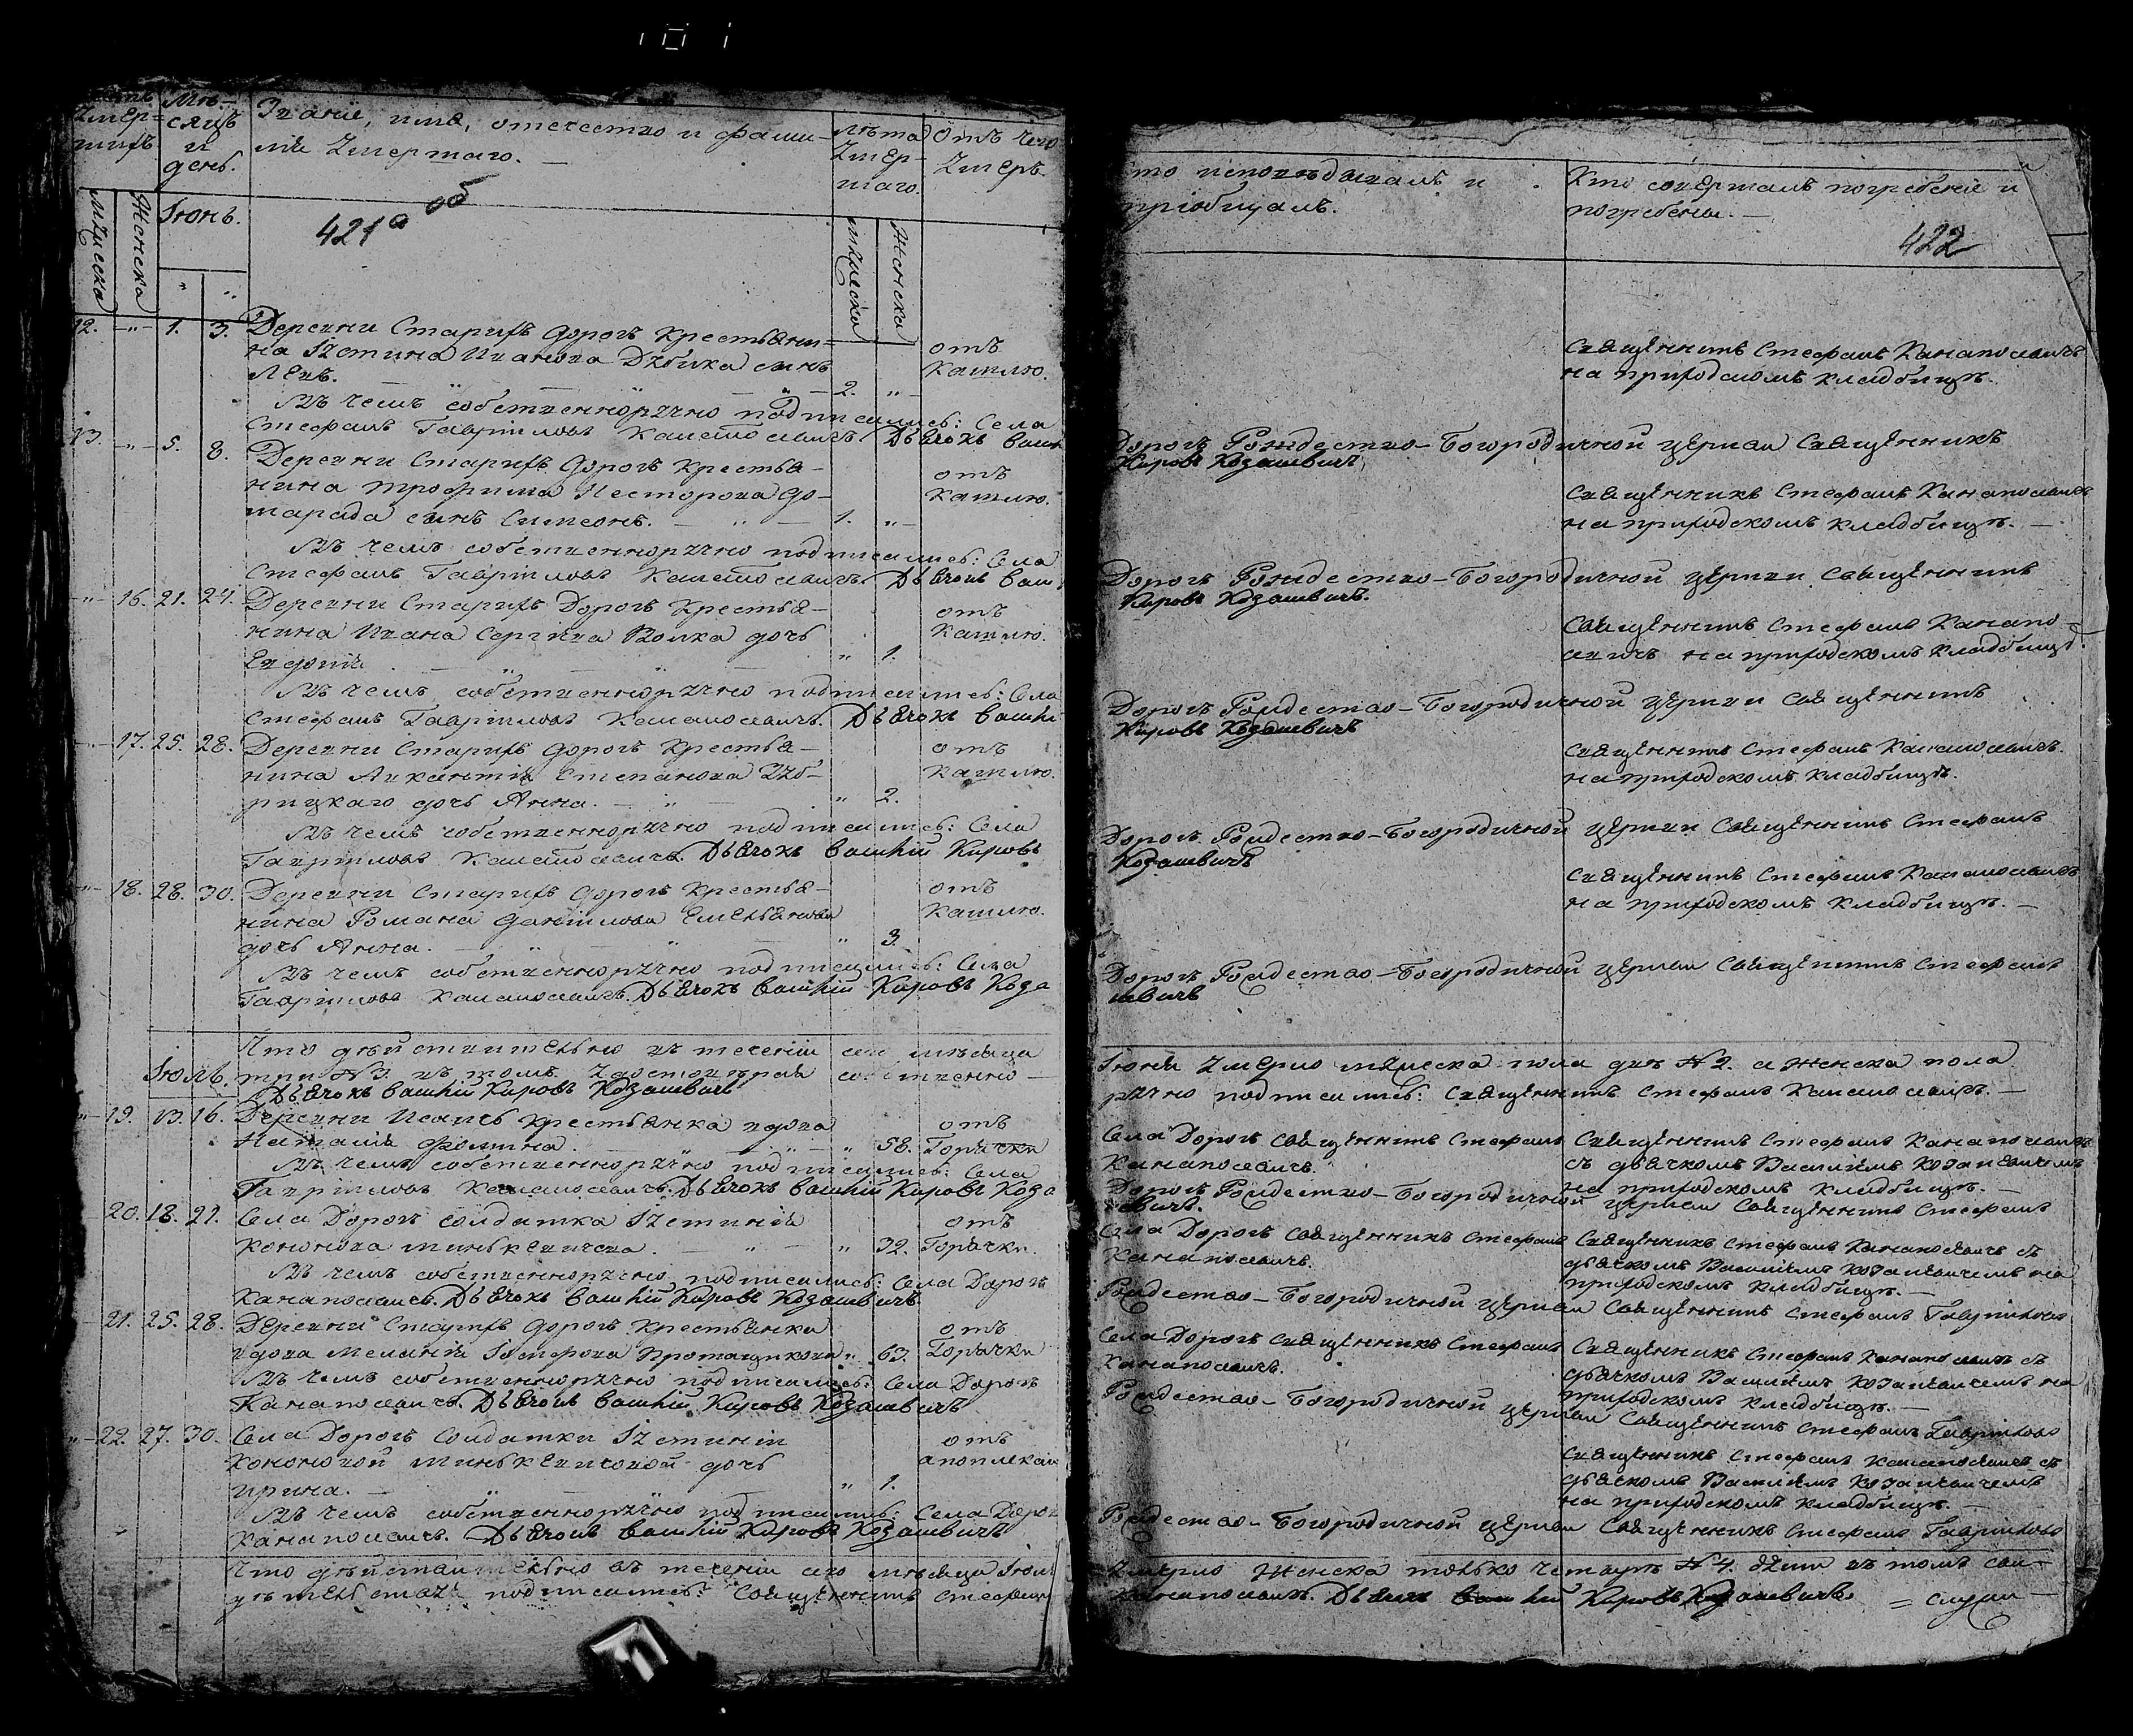 Умер-
шихъ
Мѣ-
сяцъ
и
день.
Званіе, имя, отечество и фами-
лія Умершаго. —
лѣта
Умер-
шаго.
отъ чего
Умеръ.
Мужеска
Женска
Іюнь.
421а об
мужеска
Женска
12. —„— 1. 3. Деревни Старихъ Дорогъ Крестьяни-
на Устина Иванова Дзѣбика сынъ
Левъ. — „ — „ — 2. „ —
отъ
Кашлю.
Въ чемъ собственноручно подписались: Села
Стефанъ Гавріиловъ Канапосевичъ. Дьячокъ Васи
13. —„— 5. 8. Деревни Старихъ Дорогъ Крестья-
нина Трофима Несторова До-
марада сынъ Симеонъ. — „ — 1. „ —
отъ
Кашлю.
Въ чемъ собственноручно подписались: Села
Стефанъ Гавріиловъ Канапосевичъ. Дьячокъ Васи
—„— 16. 21. 24. Деревни Старихъ Дорогъ Крестья-
нина Ивана Сергіева Волка дочь
Евдокія — „ — „ — „ 1.
отъ
Кашлю.
Въ чемъ собственноручно подписались: Села
Стефанъ Гавріиловъ Канапосевичъ. Дьячокъ Васілі
—„— 17. 25. 28. Деревни Старихъ Дорогъ Крестья-
нина Степанова
рицкаго дочь Анна. — „ — „ 2.
отъ
Кашлю.
Въ чемъ собственноручно подписались: Села
Гавріиловъ Канапосевичъ. Дьячокъ Василій Кировъ
—„— 18. 28. 30. Деревни Старихъ Дорогъ Крестья-
нина Романа Даніилова Емельянова
дочь Анна. — „ — „ — „ 3.
отъ
Кашлю.
Въ чемъ собственноручно подписались: Села
Гавріиловъ Канапосевичъ. Дьячокъ Василій Кировъ Коза
Что дѣйствительно въ теченіи сего мѣсяца
Іюль. три №3. въ томъ удостовѣряя собственно —
Дьячокъ Василій Кировъ Козакевичъ
„ — 19. 13. 16. Деревни Крестьянка вдова
Наталія Фомина. — „ — „ 58.
отъ
Горячки
Въ чемъ собственноручно подписались: Села
Гавріиловъ Канапосевичъ. Дьячокъ Василій Кировъ Коза
20. 18. 21. Села Дорогъ Солдатка Устинія
Кононова Минькевичева. — „ — „ 32.
отъ
Горячки.
Въ чемъ собственноручно подписались: Села Дорогъ
Канапосевичъ. Дьячокъ Василій Кировъ Козакевичъ.
21. 25. 28. Деревни Старихъ Дорогъ Крестьянка
вдова Меланія „ 63.
отъ
Горячки
Въ чемъ собственноручно подписались: Села Дорогъ
Канапосевичъ. Дьячокъ Василій Кировъ Козакевичъ
„ — 22. 27. 30. Села Дорогъ Солдатки Устиніи
Кононовой Минькевичевой дочь
Ирина. — „ — „ — „ 1.
отъ
апоплексіи
Въ чемъ собственноручно подписались: Села Дорог
Канапосевичъ. Дьячокъ Василій Кировъ Козакевичъ
Что дѣйствительно въ теченіи сего мѣсяца Іюля
подписались: Священникъ Стефанъ
то исповѣдывалъ и
пріобщалъ.
Кто совершалъ погребеніе и
погребены. —
422
Священникъ Стефанъ Канапосевичъ
на приходскомъ кладбищѣ.
Дорогъ Рождество-Богородичной церкви Священникъ
Кировъ Козакевичъ
Священникъ Стефанъ Канапосевичъ
на приходскомъ кладбищѣ. —
Дорогъ Рождество-Богородичной церкви Священникъ
Кировъ Козакевичъ.
Священникъ Стефанъ Канапо-
севичъ на приходскомъ кладбищѣ.
Дорогъ Рождество-Богородичной церкви Священникъ
Кировъ Козакевичъ
Священникъ Стефанъ Канапосевичъ.
на приходскомъ кладбищѣ.
Дорогъ Рождество-Богородичной церкви Священникъ Стефанъ
Козакевичъ
Священникъ Стефанъ Канапосевичъ
на приходскомъ кладбищѣ. —
Дорогъ Рождество-Богородичной церкви Священникъ Стефанъ
кевичъ
Іюня Умерло мужеска пола два №2. а Женска пола
ручно подписались: Священникъ Стефанъ Канапосевичъ. —
Села Дорогъ Священникъ Стефанъ
Канапосевичъ.
Священникъ Стефанъ Канапосевичъ
съ дьячкомъ Василіемъ Козакевичемъ
на приходскомъ кладбищѣ. —
Дорогъ Рождество-Богородичной церкви Священникъ Стефанъ
кевичъ.
Села Дорогъ Священникъ Стефанъ
Канапосевичъ.
Священникъ Стефанъ Канапосевичъ съ
дьячкомъ Василіемъ Козакевичемъ на
приходскомъ кладбищѣ. —
Рождество-Богородичной церкви Священникъ Стефанъ Гавріиловъ
Села Дорогъ Священникъ Стефанъ
Канапосевичъ.
Священникъ Стефанъ Канапосевичъ съ
дьячкомъ Василіемъ Козакевичемъ на
приходскомъ кладбищѣ. —
Рождество-Богородичной церкви Священникъ Стефанъ Гавріиловъ
Священникъ Стефанъ Канапосевичъ съ
дьячкомъ Василіемъ Козакевичемъ
на приходскомъ кладбищѣ. —
Рождество-Богородичной церкви Священникъ Стефанъ Гавріиловъ
Умерло Женска только четыре №4. души въ томъ сви-
Канапосевичъ. Дьячокъ Василій Кировъ Козакевичъ.